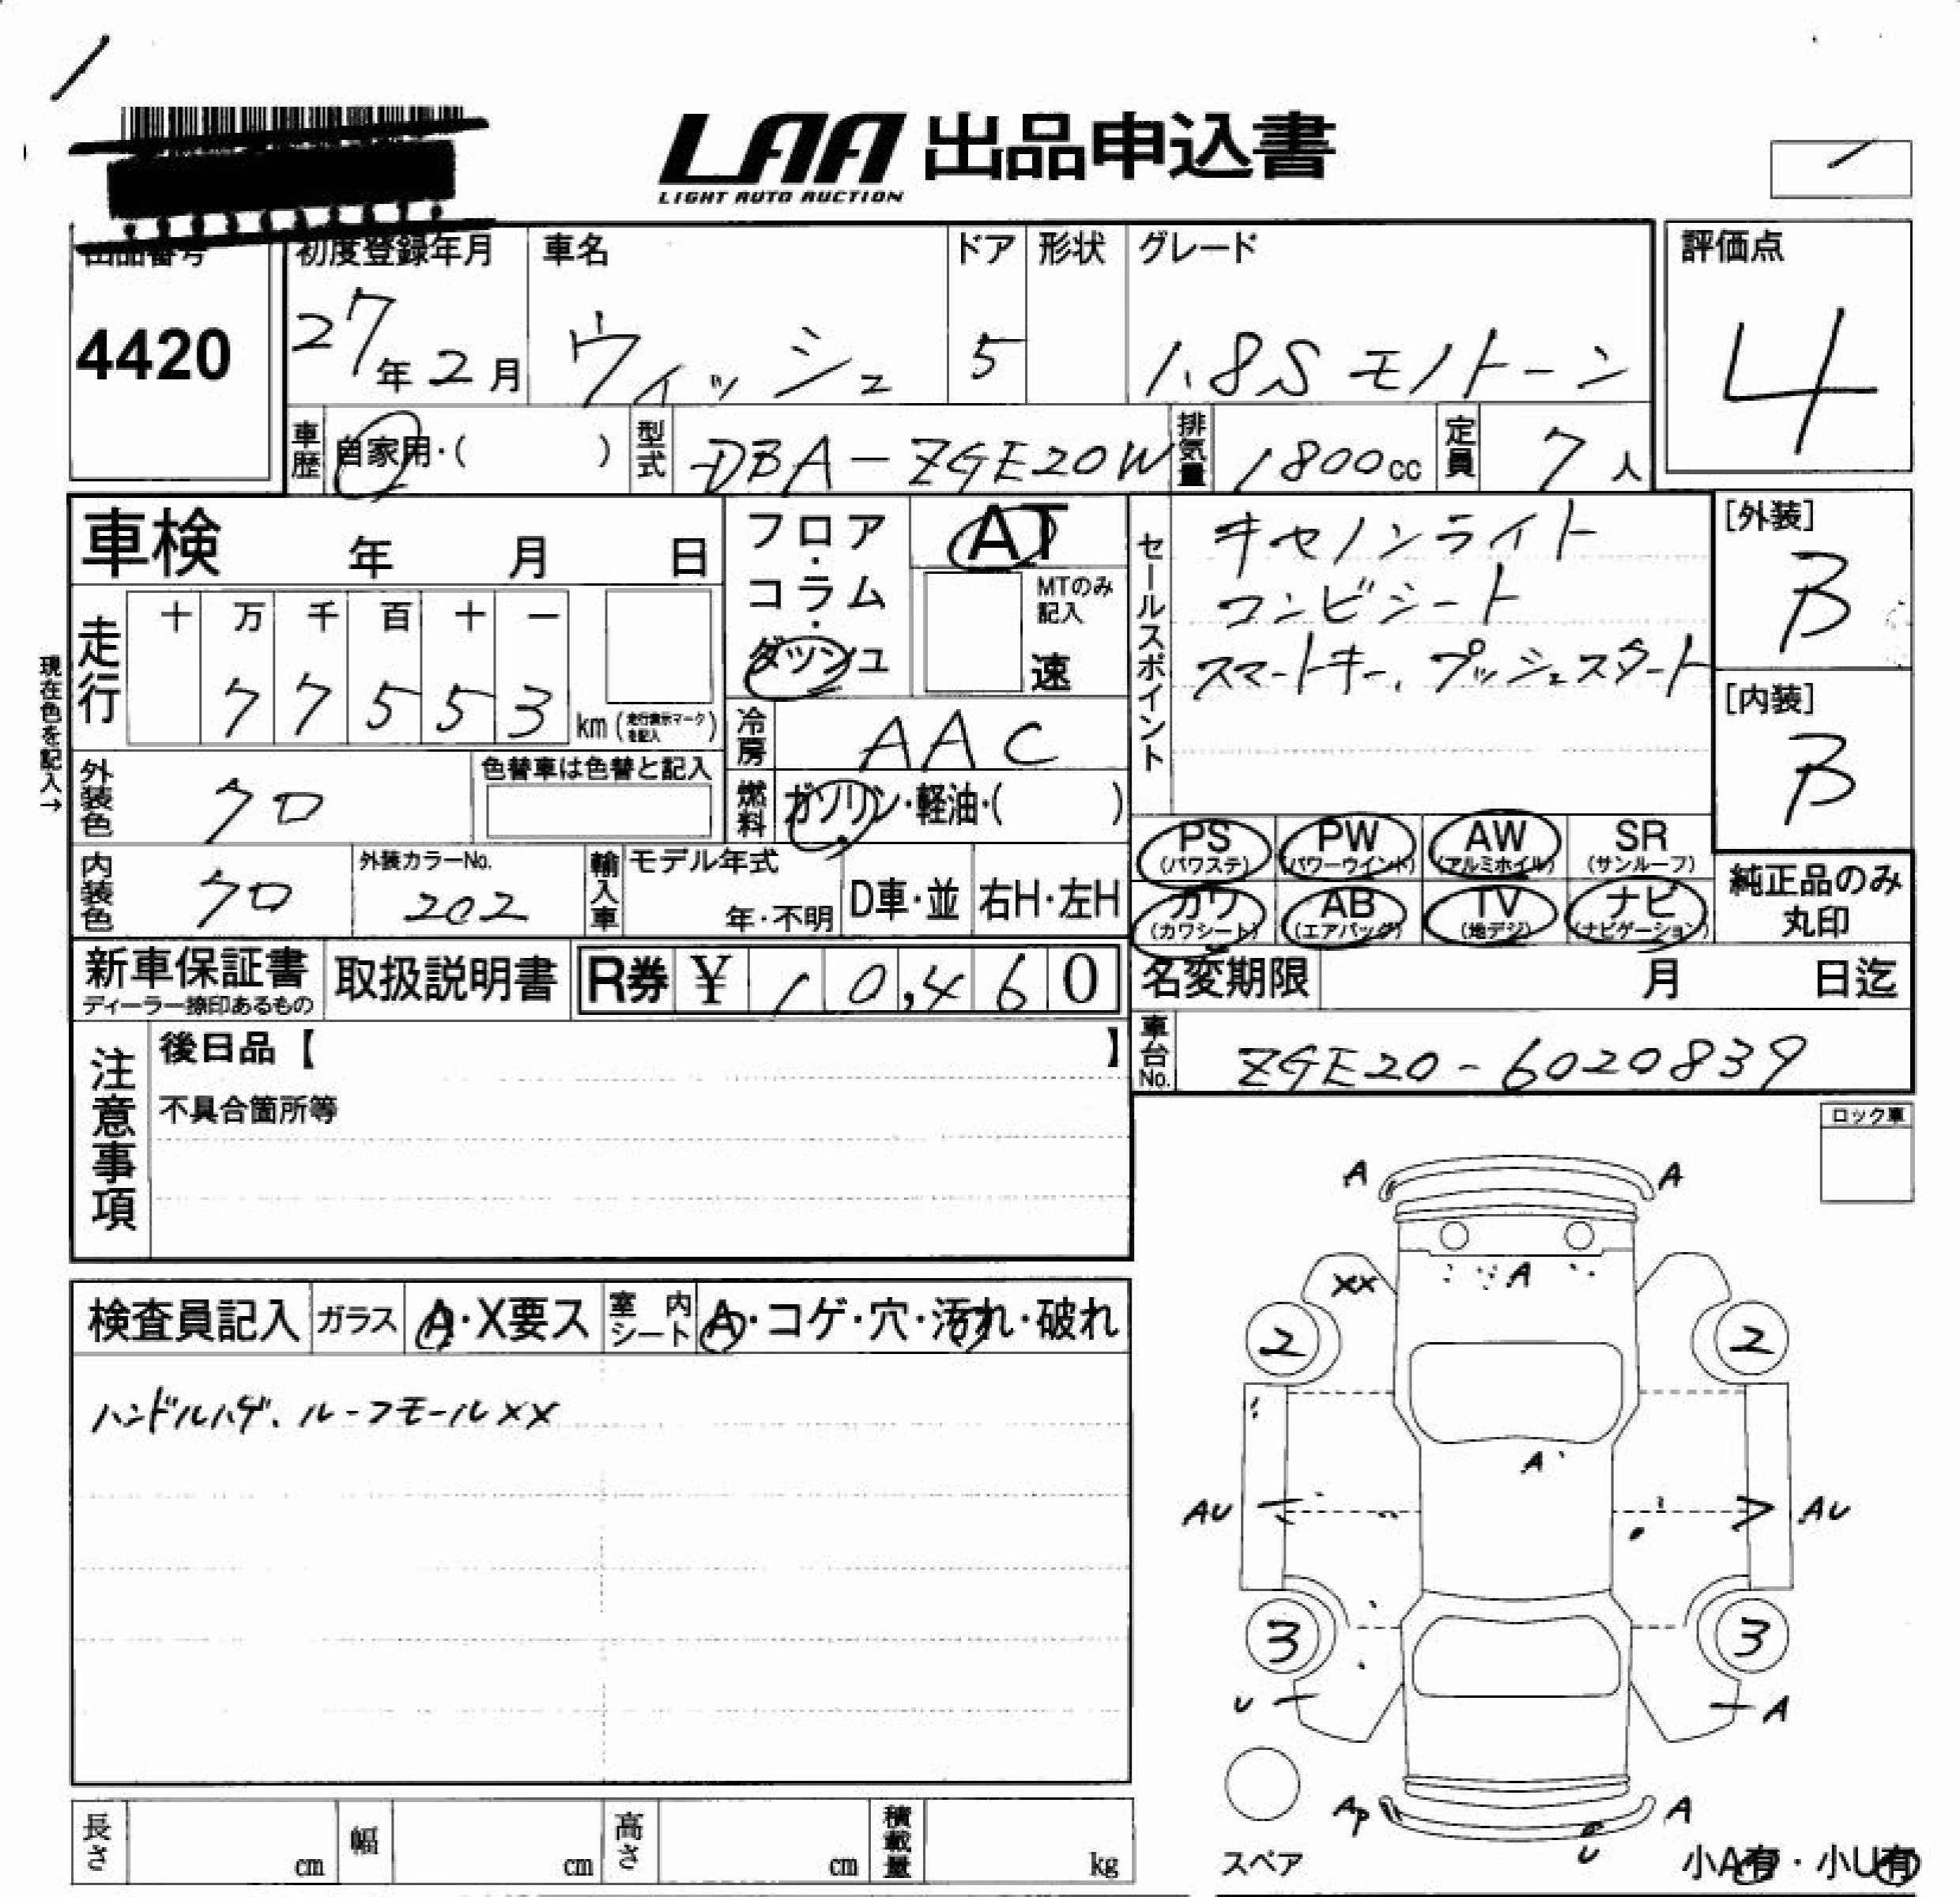 LAA 出品申込書
LIGHT AUTO AUCTION
出品番号 初度登録年月 車名 ドア 形状 グレード 評価点
4420 27年2月 ヴィッシュ 5 1.8S モノトーン 4
車歴 自家用・( ) 型式 DBA-ZGE20W 排気量 1800cc 定員 7人
車検 年 月 日
フロア・コラム・ダッシュ
AT
MTのみ記入
速
セールスポイント
キセノンライト
コンビシート
スマートキー、プッシュスタート
[外装]
B
[内装]
B
現在色を記入→
走行 十 万 千 百 十 一
77553 km (走行表示マークを記入)
冷房 AAC
外装色 クロ 色替車は色替と記入
燃料 ガソリン・軽油・( )
PS (パワステ) PW (パワーウインド) AW (アルミホイル) SR (サンルーフ)
カワ (カワシート) AB (エアバッグ) TV (地デジ) ナビ (ナビゲーション)
純正品のみ丸印
内装色 クロ 外装カラーNo. 202 輸入車 モデル年式 年・不明 D車・並 右H・左H
新車保証書 ディーラー捺印あるもの 取扱説明書 R券 ¥ 10,460
名変期限 月 日迄
車台No. ZGE20-6020839
注意事項
後日品【 】
不具合箇所等
ロック車
検査員記入 ガラス A・X要ス 室内シート A・コゲ・穴・汚れ・破れ
ハンドルハゲ、ルーフモールXX
A A
A
XX
2 2
A
AU AU
3 3
U A
AP A
U
スペア
小A有・小U有
長さ cm 幅 cm 高さ cm 積載量 kg